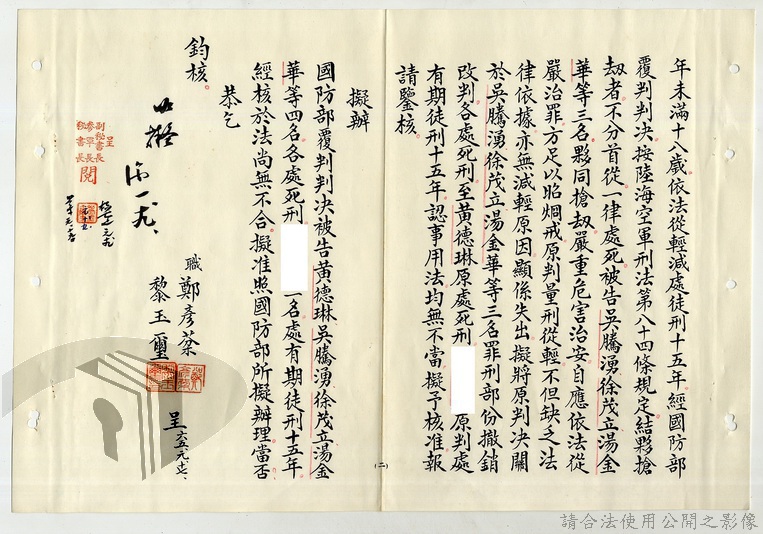 年未滿十八歲依法從輕減處徒刑十五年經國防部
覆判判決按陸海空軍刑法第八十四條規定結夥搶
劫者不分首從一律處死被告吳騰湧徐茂立湯金
華等三名夥同搶劫嚴重危害治安自應依法從
嚴治罪方足以昭烱戒原判量刑從輕不但缺乏法
律依據亦無減輕原因顯係失出擬將原判決關
於吳騰湧徐茂立湯金華等三名罪刑部份撤銷
改判各處死刑至黃德琳原處死刑 原判處
有期徒刑十五年認事用法均無不當擬予核准報
請鑒核。
擬辦
國防部覆判判決被告黃德琳吳騰湧徐茂立湯金
華等四名各處死刑 一名處有期徒刑十五年
經核於法尚無不合擬准照國防部所擬辦理當否
恭乞
鈞核。
職 鄭彥棻
黎玉璽
呈
如擬
呈
副秘書長
參軍長
秘書長
閱
(二)
請合法使用公開之影像